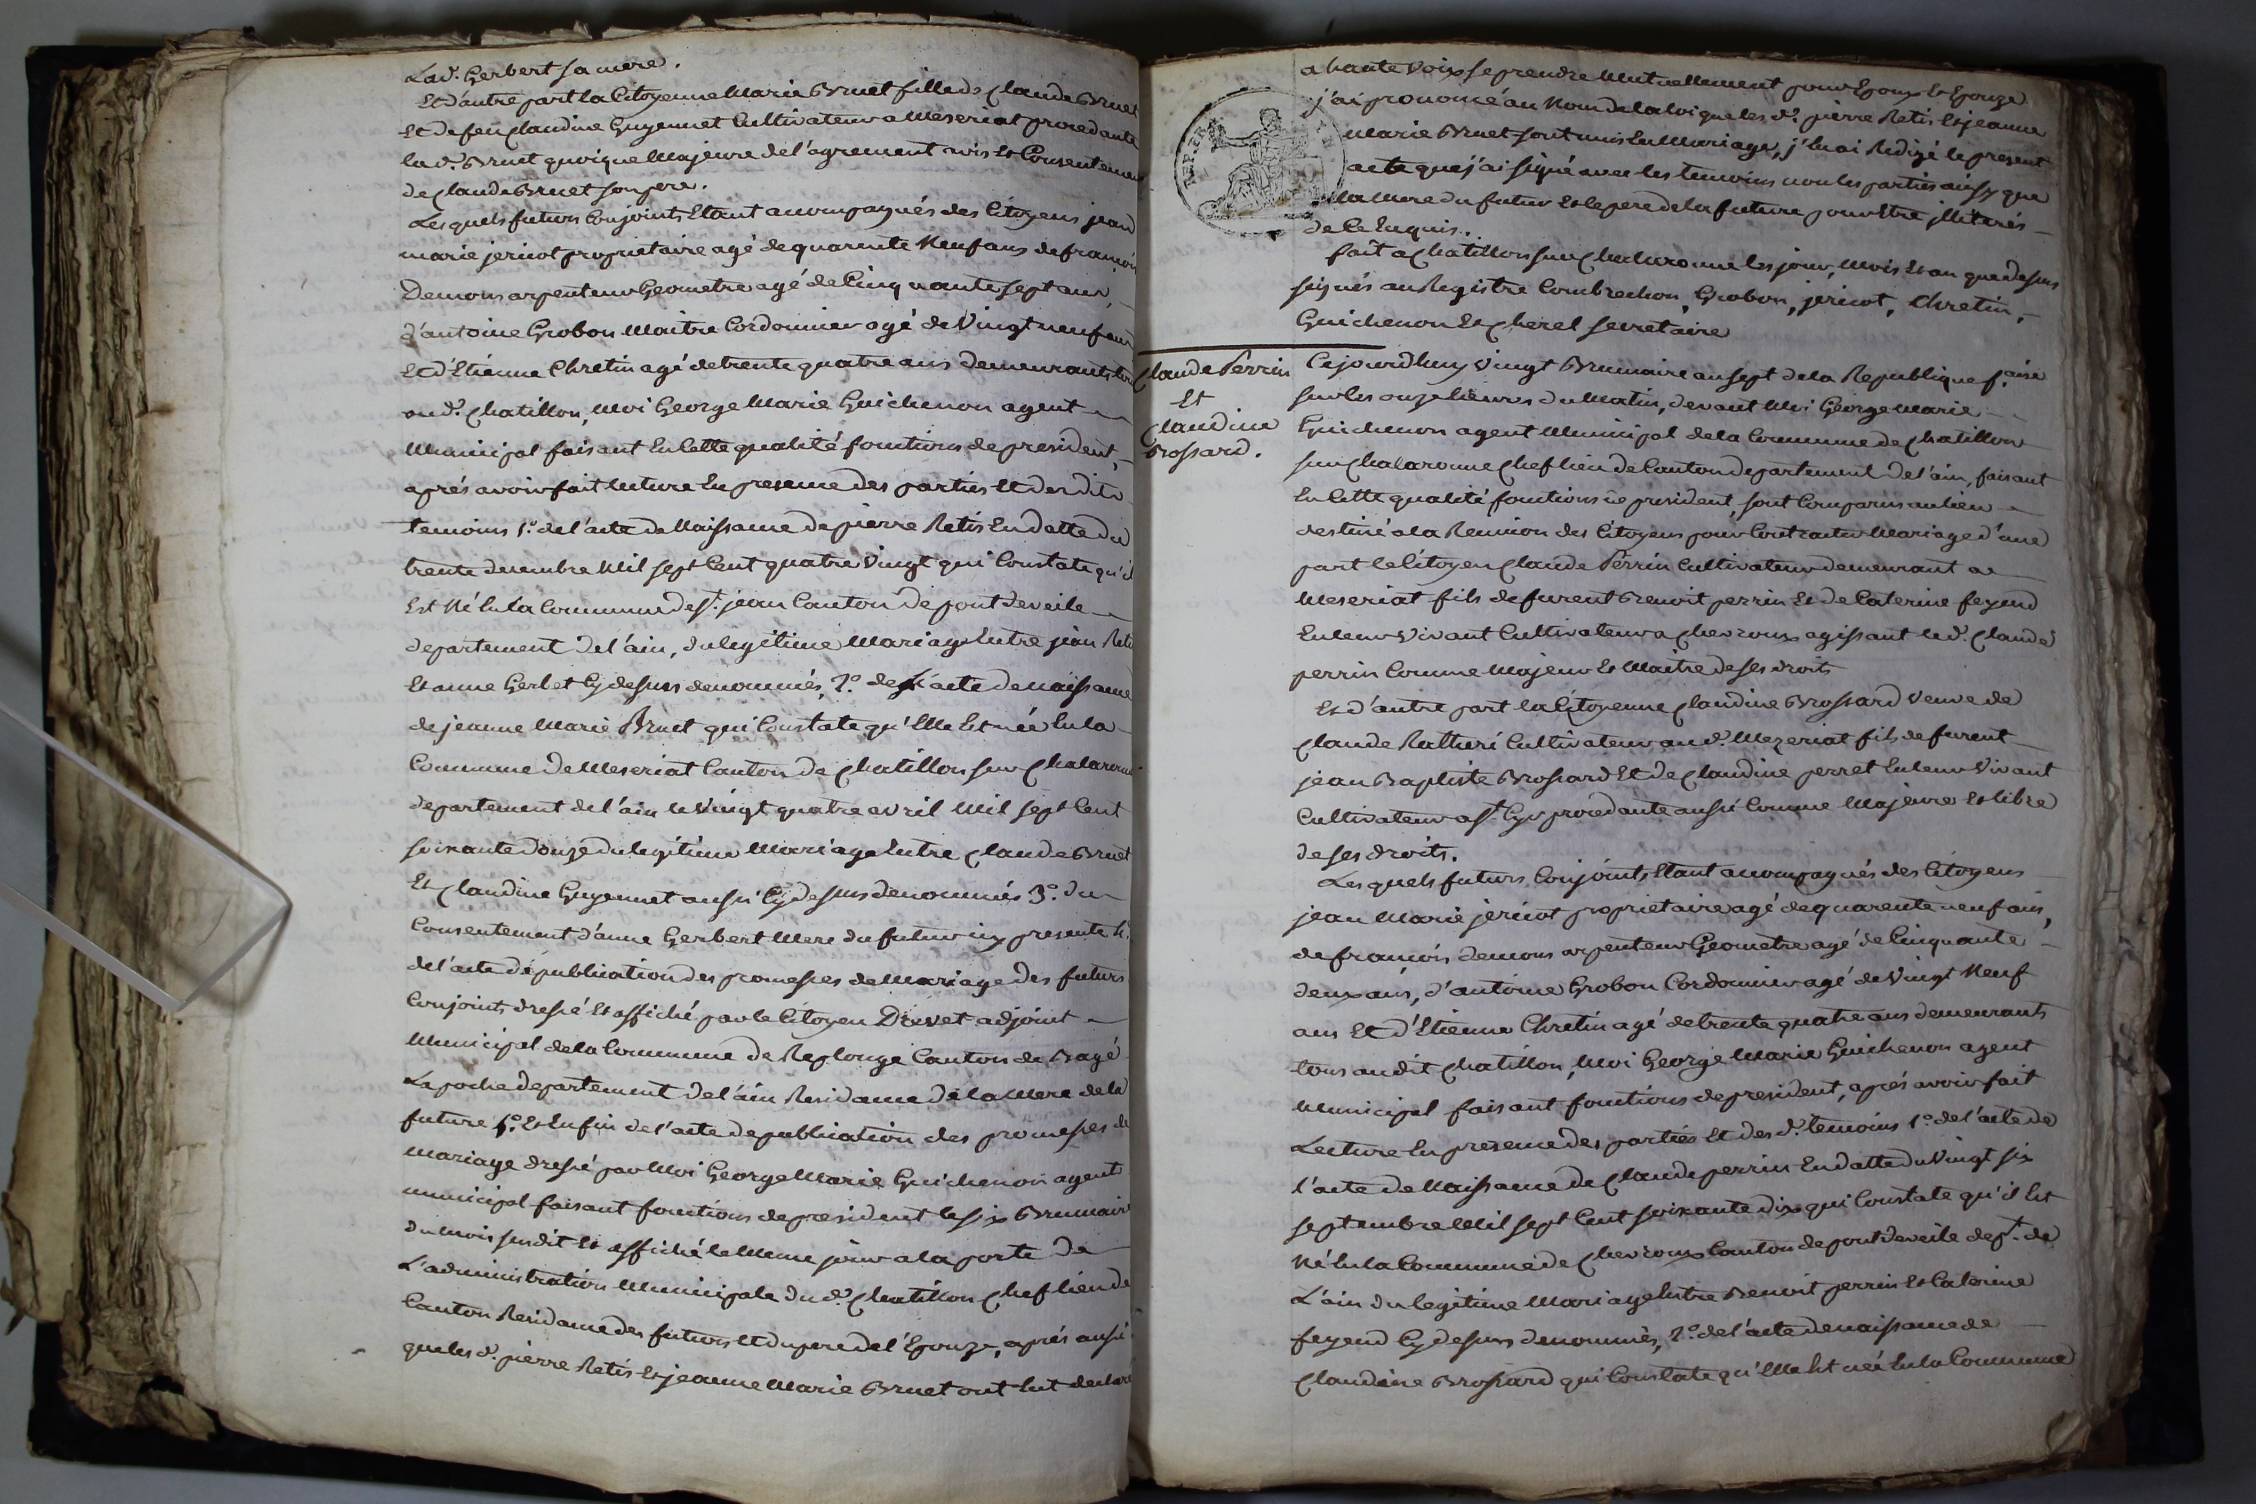 Lad. Gerbert sa mere.
Et d'autre part la Citoyenne Marie Bruet fille de Claude Bruet
Et de feu Claudine Guyennet Cultivateur a Meseriat procedante
la d. Bruet quoique Majeure de l'agrement avis Et Consentement
de Claude Bruet son pere.
Lesquels futurs Conjoints Etant accompagnés des Citoyens jean
marie jericot proprietaire agé de quarente Neuf ans de françois
Demons arpenteur Geometre agé de Cinquante sept ans,
d'antoine Grobon Maitre Cordonnier agé de Vingt neuf ans
Et d'Etienne Chretin agé de trente quatre ans demeurants tous
au d. Chatillon, Moi George Marie Guichenon agent
Municipal faisant En Cette qualité fonctions de president,
aprés avoir fait lecture En presence des parties Et des dits
temoins 1.º de l'acte de Naissance de pierre Retis En datte du
trente decembre Mil sept Cent quatre Vingt qui Constate qu'il
Est Né En La Commune de S.t jean Canton de pontdeveile
departement de l'ain, du legitime Mariage Entre jean Retis
Et anne Gerbet Cy dessus denommés, 2.º de l'acte de naissance
de jeanne Marie Bruet qui Constate qu'Elle Est née En la
Commune de Meseriat Canton de Chatillon sur Chalaronne
departement de l'ain le Vingt quatre avril Mil sept Cent
soixante douze du legitime Mariage Entre Claude Bruet
Et Claudine Guyennet aussi Cy dessus denommés 3.º du
Consentement d'anne Gerbert Mere du futur icy presente 4.º
de l'acte de publication des promesses de Mariage des futurs
Conjoints dressé Et affiché par le Citoyen Drevet adjoint
Municipal de la Commune de Replonge Canton de Bagé
La poche departement de l'ain Residance de la Mere de la
future 5.º Et Enfin de l'acte de publication des promesses de
mariage dressé par Moi George Marie Guichenon agent
municipal faisant fonctions de president le six Brumaire
du mois susdit Et affiché le Meme jour a la porte de
L'administration Municipale du d. Chatillon Chef lieu de
Canton Residance des futurs Et du pere de l'Epouze, aprés aussi
que les d. pierre Retis Et jeanne Marie Bruet ont Eut declaré
a haute Voix se prendre Mutuellement pour Epoux Et Epouze
j'ai prononcé au Nom de la loi que les d. pierre Retis Et jeanne
Marie Bruet sont unis En Mariage, j'En ai Redigé le present
acte que j'ai signé avec les temoins non les parties ainsy que
la Mere du futur Et le pere de la future pour Etre jlliterés
de Ce Enquis.
REP. FRA
fait a Chatillon sur Chalaronne les jour, Mois Et an que dessus
signés au Registre Combrechon, Grobon, jericot, Chretin,
Guichenon Et Cherel secretaire
Claude Perrin
Et
Claudine
Brossard.
Cejourdhuy Vingt Brumaire an sept de la Republique f.aise
sur les onze heures du Matin, devant Moi George Marie
Guichenon agent Municipal de la Commune de Chatillon
sur Chalaronne Chef lieu de Canton departement de l'ain, faisant
En Cette qualité fonctions de president, sont Comparus au lieu
destiné a la Reunion des Citoyens pour Contracter Mariage d'une
part le Citoyen Claude Perrin Cultivateur demeurant a
Meseriat fils de furent Benoit perrin Et de Caterine feyend
En leur Vivant Cultivateur a Chevroux agissant le d. Claude
perrin Comme Majeur Et Maitre de ses droits
Et d'autre part la Citoyenne Claudine Brossard Veuve de
Claude Cultivateur au d. Mezeriat fils de furent
jean Baptiste Brossard Et de Claudine perret En leur Vivant
Cultivateur a S.t Cyr procedante aussi Comme Majeure Et libre
de ses droits.
Lesquels futurs Conjoints Etant accompagnés des Citoyens
jean Marie jericot proprietaire agé de quarente neuf ans,
de françois demons arpenteur Geometre agé de Cinquante
deux ans, d'antoine Grobon Cordonnier agé de Vingt Neuf
ans Et d'Etienne Chretin agé de trente quatre ans demeurants
tous audit Chatillon, Moi George Marie Guichenon agent
Municipal faisant fonctions de president, aprés avoir fait
Lecture En presence des parties Et des d. temoins 1.º de l'acte de
l'acte de Naissance de Claude perrin En datte du Vingt six
septembre Mil sept Cent soixante dix qui Constate qu'il Est
Né En la Commune de Chevroux Canton de pontdeveile dep.t de
L'ain du legitime Mariage Entre Benoit perrin Et Caterine
feyend Cy dessus denommés, 2.º de l'acte de naissance de
Claudine Brossard qui Constate qu'Elle Est née En la Commune